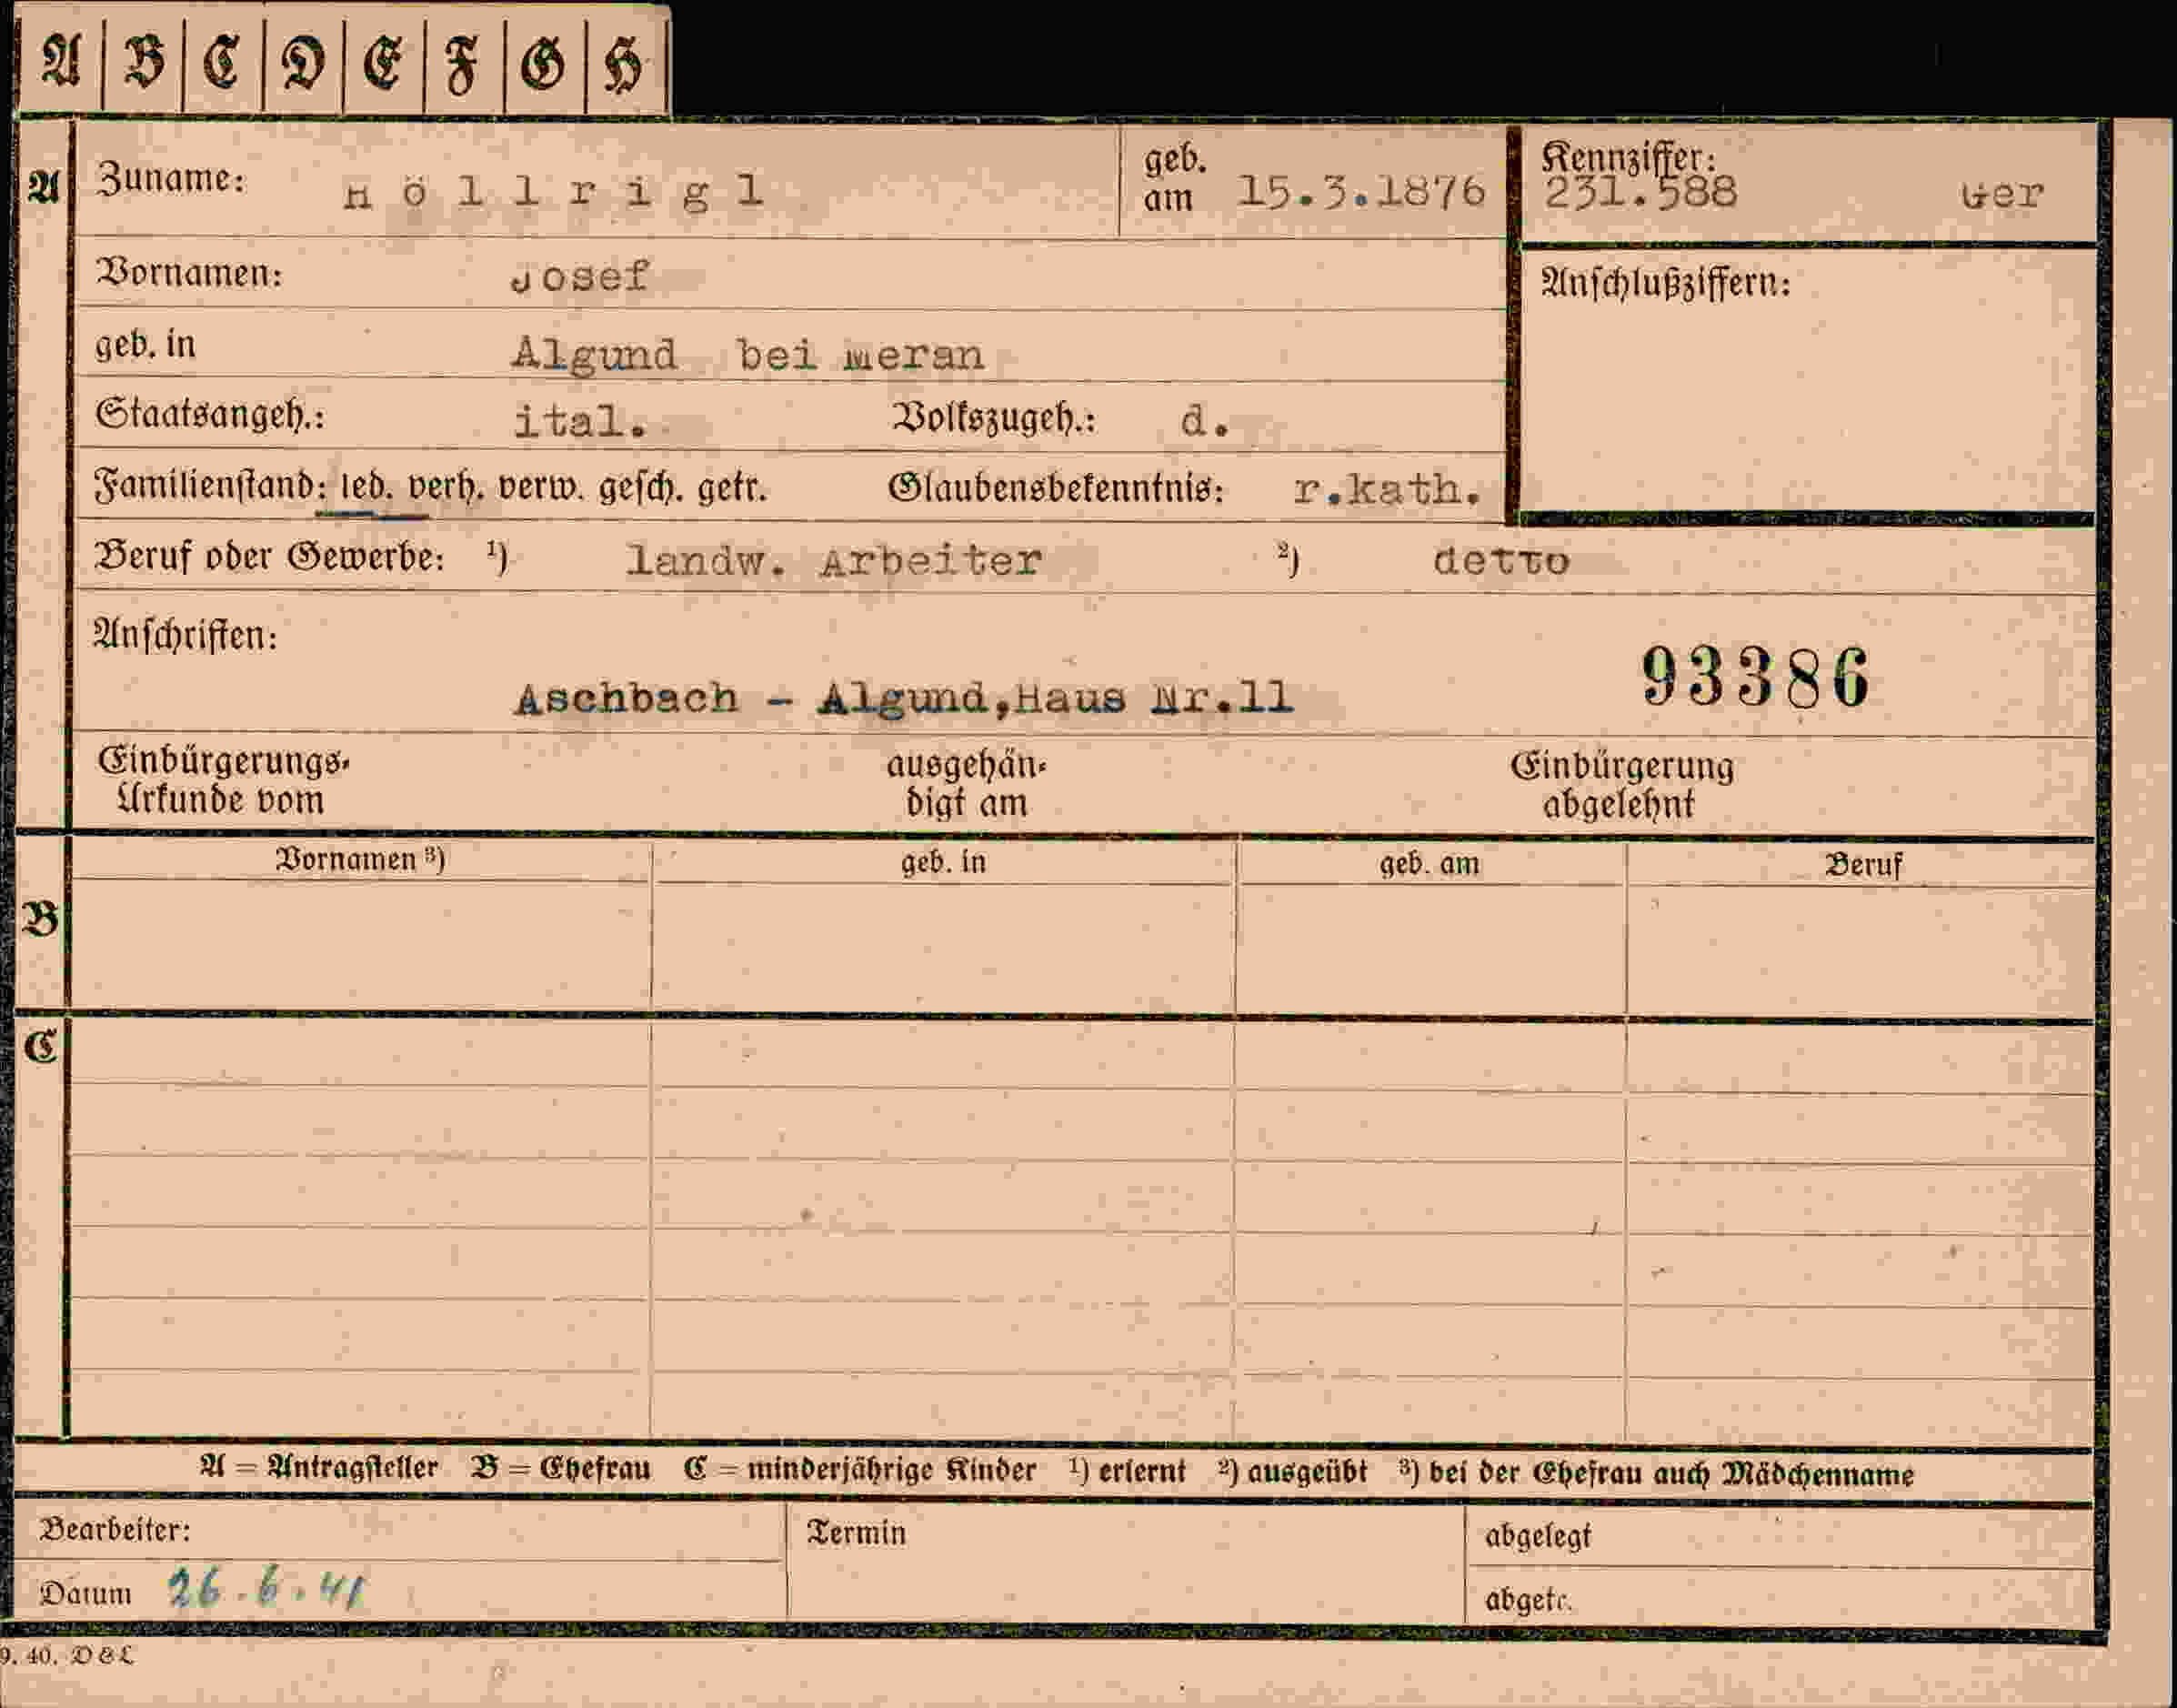 A B C D E F G H
A Zuname: Höllrigl geb. am 15.3.1876 Kennziffer: 231.588 Ger
Vornamen: Josef Anschlußziffern:
geb. in Algund bei Meran
Staatsangeh.: ital. Volkszugeh.: d.
Familienstand: led. verh. verw. gesch. getr. Glaubensbekenntnis: r.kath.
Beruf oder Gewerbe: ¹) landw. Arbeiter ²) detto
Anschriften:
93386
Aschbach - Algund,Haus Nr.11
Einbürgerungs- ausgehän- Einbürgerung
Urkunde vom digt am abgelehnt
Vornamen ³) geb. in geb. am Beruf
B
C
A = Antragsteller B = Ehefrau C = minderjährige Kinder ¹) erlernt ²) ausgeübt ³) bei der Ehefrau auch Mädchenname
Bearbeiter: Termin abgelegt
Datum 26.6.41 abgetr.
9. 40. D & L